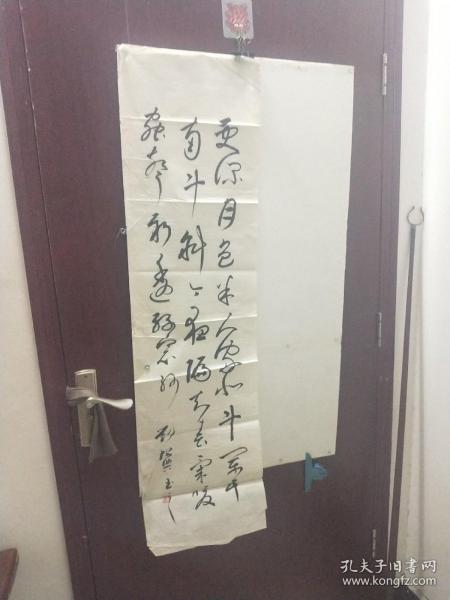 更深月色半人家北斗闌干
南斗斜今夜偏知春氣暖
蟲聲新透綠窗紗
孔夫子旧书网
www.kongfz.com